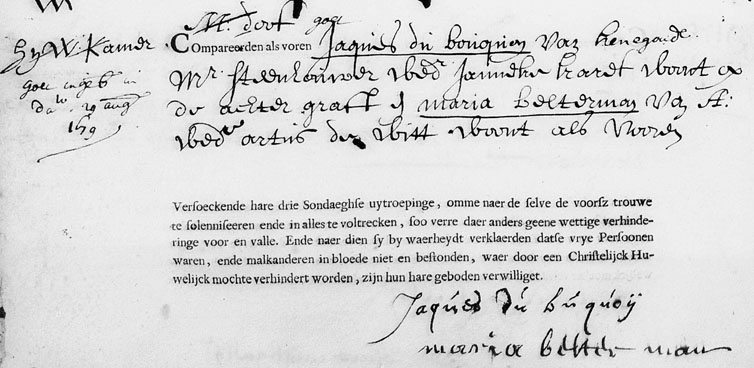 Compareerden als voren Jaques du bouquoy van henegoude
Mr steenhouwer wedr Janneke hardt woont op
de achter graft & maria belterman van A:
wedue artus de witt woont als vooren
Versoeckende hare drie Sondaeghse uytroepinge, omme naer de selve de voorsz trouwe
te solenniseeren ende in alles te voltrecken, soo verre daer anders geene wettige verhinde-
ringe voor en valle. Ende naer dien sy by waerheydt verklaerden datse vrye Persoonen
waren, ende malkanderen in bloede niet en bestonden, waer door een Christelijck Hu-
welijck mochte verhindert worden, zijn hun hare geboden verwilliget.
Jaques du buquoij
maria belter man